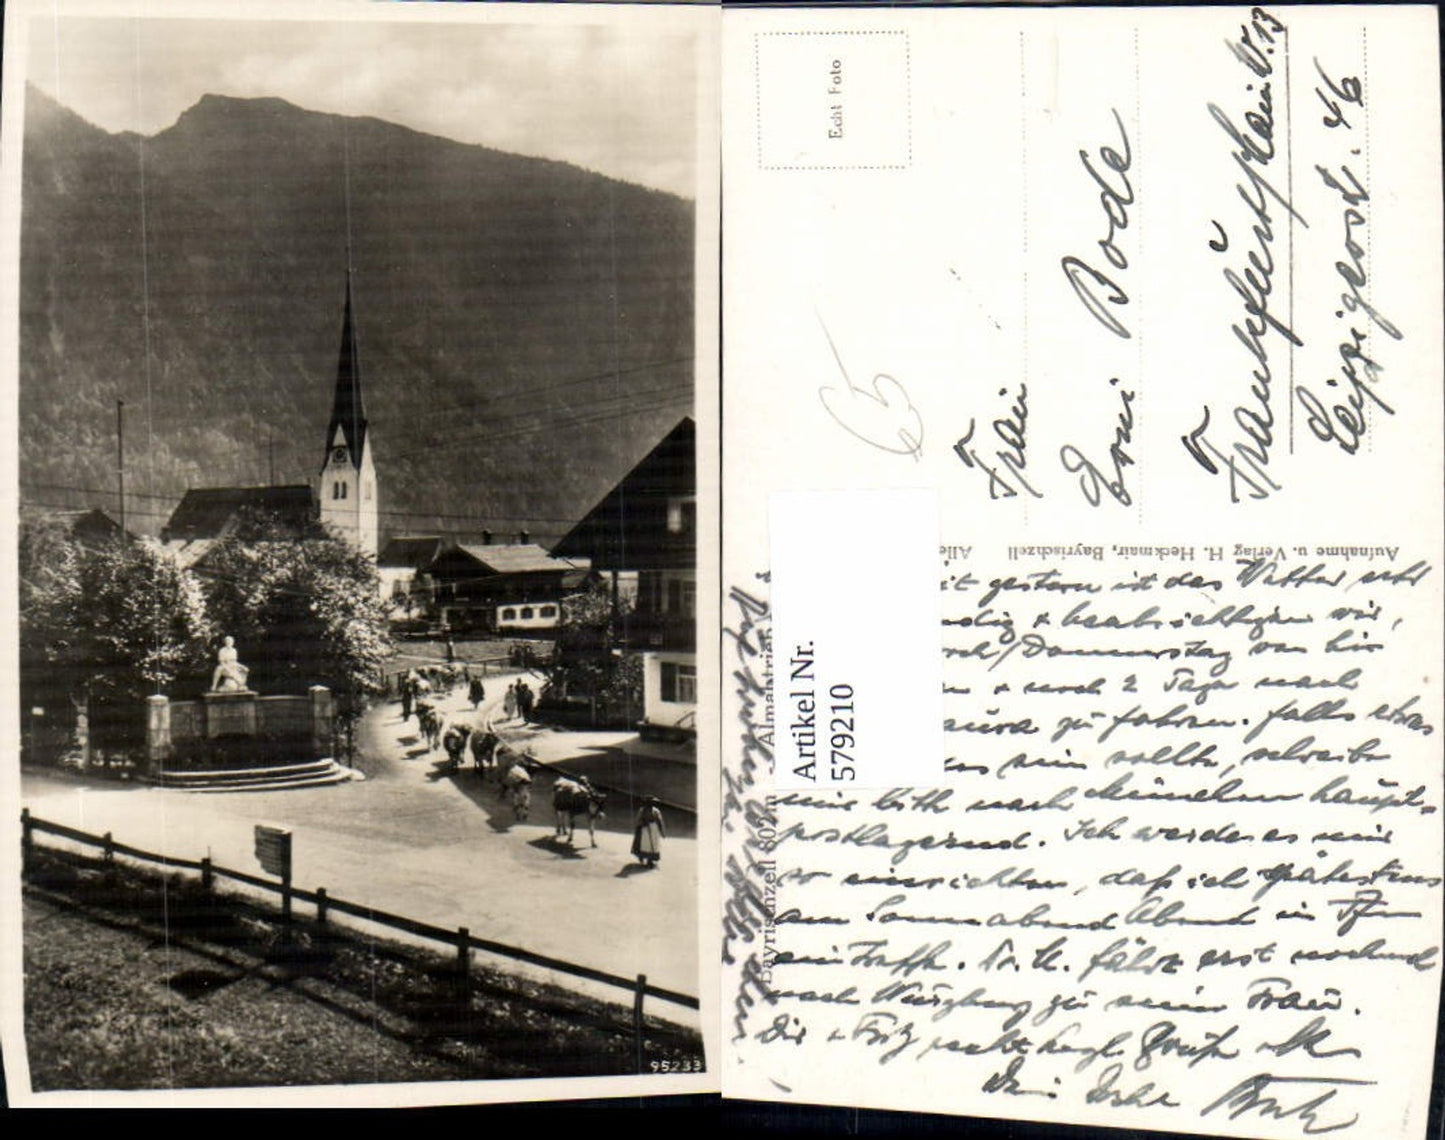 95233
Echt Foto
Frau
Erni Bode
Frankfurt/Main W. 13
Leipzigerstr. 46
Aufnahme u. Verlag H. Heckmair, Bayrischzell Alle
Bayrischzell 802 m Almabtrieb
Artikel Nr.
579210
gestern ist das Wetter sehr
+ beabsichtigen wir,
/Donnerstag von hier
+ noch 2 Tage nach
zu fahren. Falls etwas
sein sollte, schreibe
mir bitte nach München haupt-
postlagernd. Ich werde es mir
so einrichten, daß ich spätestens
am Sonnabend Abend in Ffm
eintreffe. fährt erst nochmal
nach Würzburg zu seiner Frau.
Dir + Fritz recht herzl. Grüße
Dein